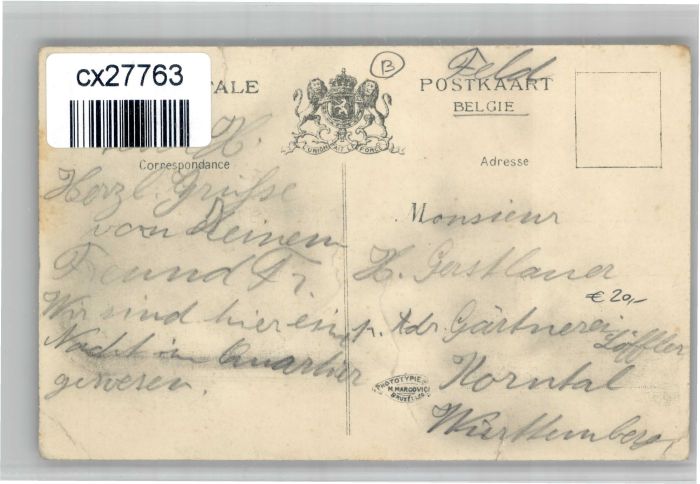 cx27763
TALE
B
Feld
POSTKAART
BELGIE
L'UNION FAIT LA FORCE
H.
Correspondance
Adresse
Herzl. Grüsse
von Deinem
Freund Fr.
Wir sind hier ein
Nacht in Quartier
gewesen.
Monsieur
H. Gerstlauer
€ 20,-
p. Adr. Gärtnerei
Löffler
Korntal
Württemberg
PHOTOTYPIE
H. MARCOVICI
BRUXELLES